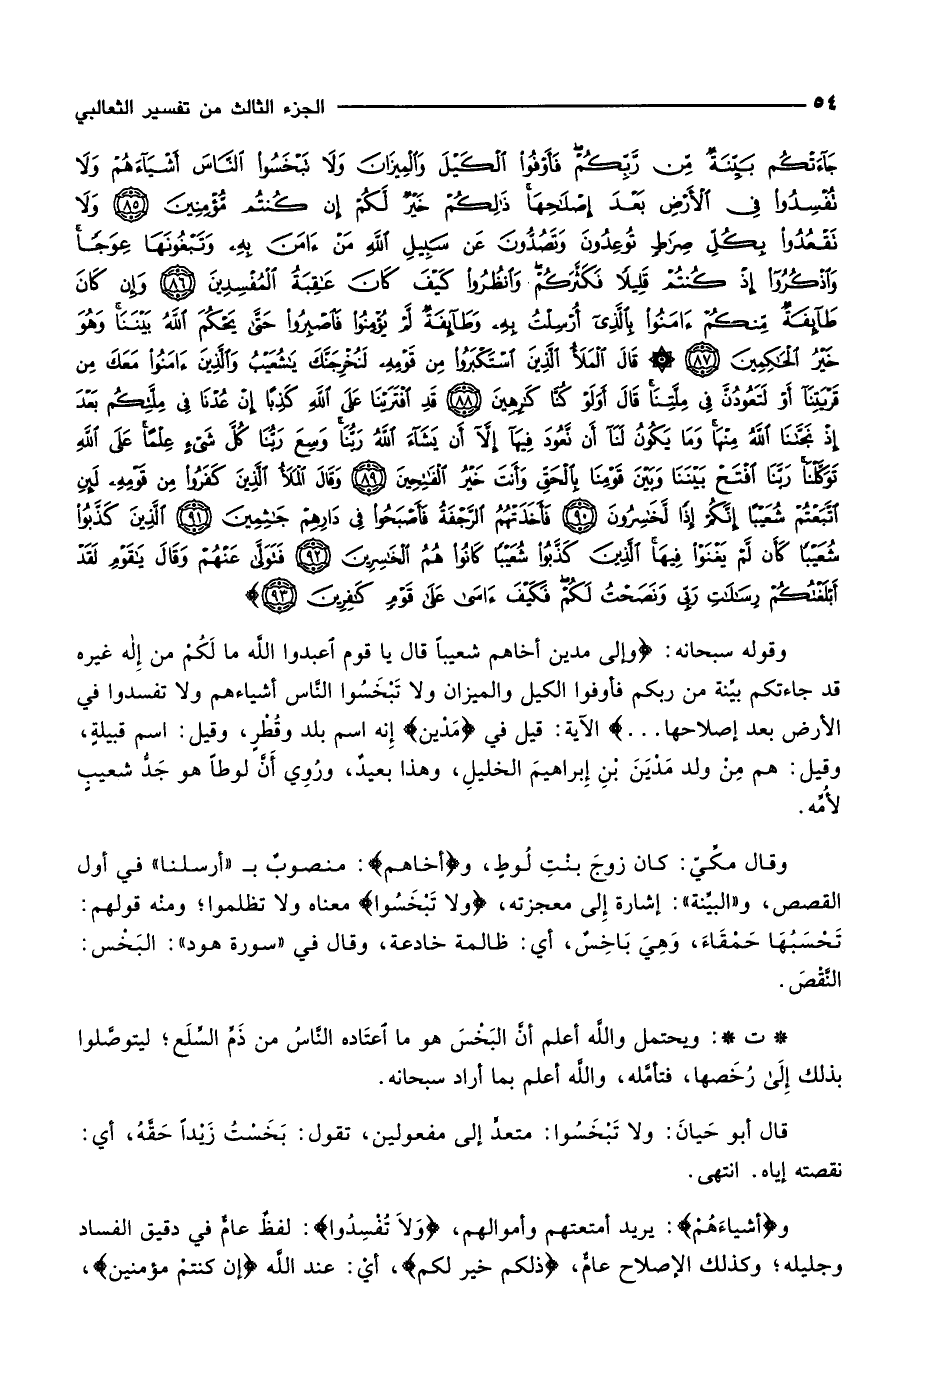 ٥٤ الجزء الثالث من تفسير الثعالبي
جَآءَتْكُم بَيِّنَةٌ مِّن رَّبِّكُمْ فَأَوْفُوا الْكَيْلَ وَالْمِيزَانَ وَلَا تَبْخَسُوا النَّاسَ أَشْيَآءَهُمْ وَلَا
تُفْسِدُوا فِى الْأَرْضِ بَعْدَ إِصْلَاحِهَا ذَٰلِكُمْ خَيْرٌ لَّكُمْ إِن كُنتُم مُّؤْمِنِينَ ﴿٨٥﴾ وَلَا
تَقْعُدُوا بِكُلِّ صِرَاطٍ تُوعِدُونَ وَتَصُدُّونَ عَن سَبِيلِ اللَّهِ مَنْ ءَامَنَ بِهِۦ وَتَبْغُونَهَا عِوَجًا
وَاذْكُرُوٓا إِذْ كُنتُمْ قَلِيلًا فَكَثَّرَكُمْ وَانظُرُوا كَيْفَ كَانَ عَٰقِبَةُ الْمُفْسِدِينَ ﴿٨٦﴾ وَإِن كَانَ
طَآئِفَةٌ مِّنكُمْ ءَامَنُوا بِالَّذِىٓ أُرْسِلْتُ بِهِۦ وَطَآئِفَةٌ لَّمْ يُؤْمِنُوا فَاصْبِرُوا حَتَّىٰ يَحْكُمَ اللَّهُ بَيْنَنَا وَهُوَ
خَيْرُ الْحَٰكِمِينَ ﴿٨٧﴾ ۞ قَالَ الْمَلَأُ الَّذِينَ اسْتَكْبَرُوا مِن قَوْمِهِۦ لَنُخْرِجَنَّكَ يَٰشُعَيْبُ وَالَّذِينَ ءَامَنُوا مَعَكَ مِن
قَرْيَتِنَآ أَوْ لَتَعُودُنَّ فِى مِلَّتِنَا قَالَ أَوَلَوْ كُنَّا كَٰرِهِينَ ﴿٨٨﴾ قَدِ افْتَرَيْنَا عَلَى اللَّهِ كَذِبًا إِنْ عُدْنَا فِى مِلَّتِكُم بَعْدَ
إِذْ نَجَّىٰنَا اللَّهُ مِنْهَا وَمَا يَكُونُ لَنَآ أَن نَّعُودَ فِيهَآ إِلَّآ أَن يَشَآءَ اللَّهُ رَبُّنَا وَسِعَ رَبُّنَا كُلَّ شَىْءٍ عِلْمًا عَلَى اللَّهِ
تَوَكَّلْنَا رَبَّنَا افْتَحْ بَيْنَنَا وَبَيْنَ قَوْمِنَا بِالْحَقِّ وَأَنتَ خَيْرُ الْفَٰتِحِينَ ﴿٨٩﴾ وَقَالَ الْمَلَأُ الَّذِينَ كَفَرُوا مِن قَوْمِهِۦ لَئِنِ
اتَّبَعْتُمْ شُعَيْبًا إِنَّكُمْ إِذًا لَّخَٰسِرُونَ ﴿٩٠﴾ فَأَخَذَتْهُمُ الرَّجْفَةُ فَأَصْبَحُوا فِى دَارِهِمْ جَٰثِمِينَ ﴿٩١﴾ الَّذِينَ كَذَّبُوا
شُعَيْبًا كَأَن لَّمْ يَغْنَوْا فِيهَا الَّذِينَ كَذَّبُوا شُعَيْبًا كَانُوا هُمُ الْخَٰسِرِينَ ﴿٩٢﴾ فَتَوَلَّىٰ عَنْهُمْ وَقَالَ يَٰقَوْمِ لَقَدْ
أَبْلَغْتُكُمْ رِسَٰلَٰتِ رَبِّى وَنَصَحْتُ لَكُمْ فَكَيْفَ ءَاسَىٰ عَلَىٰ قَوْمٍ كَٰفِرِينَ ﴿٩٣﴾﴾
وقوله سبحانه: ﴿وإلى مدين أخاهم شعيباً قال يا قوم ٱعبدوا اللَّه ما لَكُمْ من إِلٰه غيره
قد جاءتكم بيِّنة من ربكم فأوفوا الكيل والميزان ولا تَبْخَسُوا النَّاس أشياءهم ولا تفسدوا في
الأرض بعد إصلاحها...﴾ الآية: قيل في ﴿مَدْين﴾ إنه اسم بلد وقُطْرٍ، وقيل: اسم قبيلةٍ،
وقيل: هم مِنْ ولد مَدْيَنَ بْنِ إبراهيمَ الخليلِ، وهذا بعيدٌ، ورُوِي أَنَّ لوطاً هو جَدُّ شعيبٍ
لأمِّه.
وقال مكِّيّ: كان زوجَ بنْتِ لُوطٍ، و﴿أخاهم﴾: منصوبٌ بـ «أرسلنا» في أول
القصص، و«البيِّنة»: إشارة إلى معجزته، ﴿ولا تَبْخَسُوا﴾ معناه ولا تظلموا؛ ومنْه قولهم:
تَحْسَبُهَا حَمْقَاءَ، وَهِيَ بَاخِسٌ، أي: ظالمة خادعة، وقال في «سورة هود»: البَخْس:
النَّقْصَ.
* ت *: ويحتمل واللَّه أعلم أنَّ البَخْسَ هو ما ٱعتَاده النَّاسُ من ذَمِّ السِّلَع؛ ليتوصَّلوا
بذلك إِلَىٰ رُخَصها، فتأمَّله، واللَّه أعلم بما أراد سبحانه.
قال أبو حَيانَ: ولا تَبْخَسُوا: متعدٍّ إلى مفعولين، تقول: بَخَسْتُ زَيْداً حَقَّهُ، أي:
نقصته إياه. انتهى.
و﴿أشياءَهُمْ﴾: يريد أمتعتهم وأموالهم، ﴿وَلاَ تُفْسِدُوا﴾: لفظٌ عامٌّ في دقيق الفساد
وجليله؛ وكذلك الإصلاح عامٌّ، ﴿ذلكم خير لكم﴾، أيْ: عند اللَّه ﴿إن كنتمْ مؤمنين﴾،